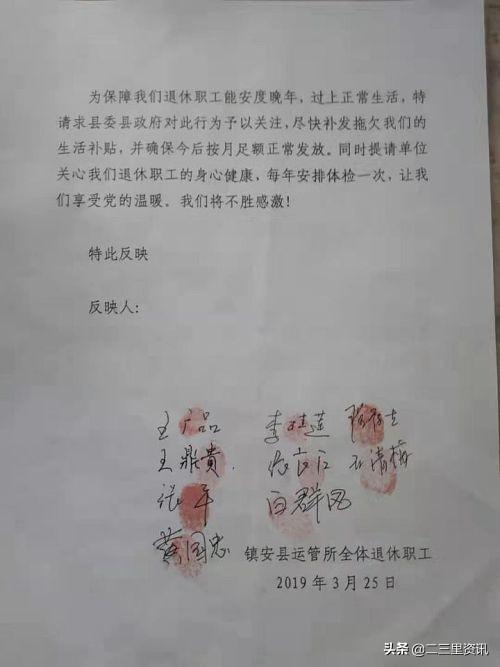 为保障我们退休职工能安度晚年，过上正常生活，特
请求县委县政府对此行为予以关注，尽快补发拖欠我们的
生活补贴，并确保今后按月足额正常发放。同时提请单位
关心我们退休职工的身心健康，每年安排体检一次，让我
们享受党的温暖。我们将不胜感激！
特此反映
反映人：
王广品 李桂莲
王鼎贵. 石清梅
张平 白群因
黄国忠
镇安县运管所全体退休职工
2019年3月25日
头条 @二三里资讯